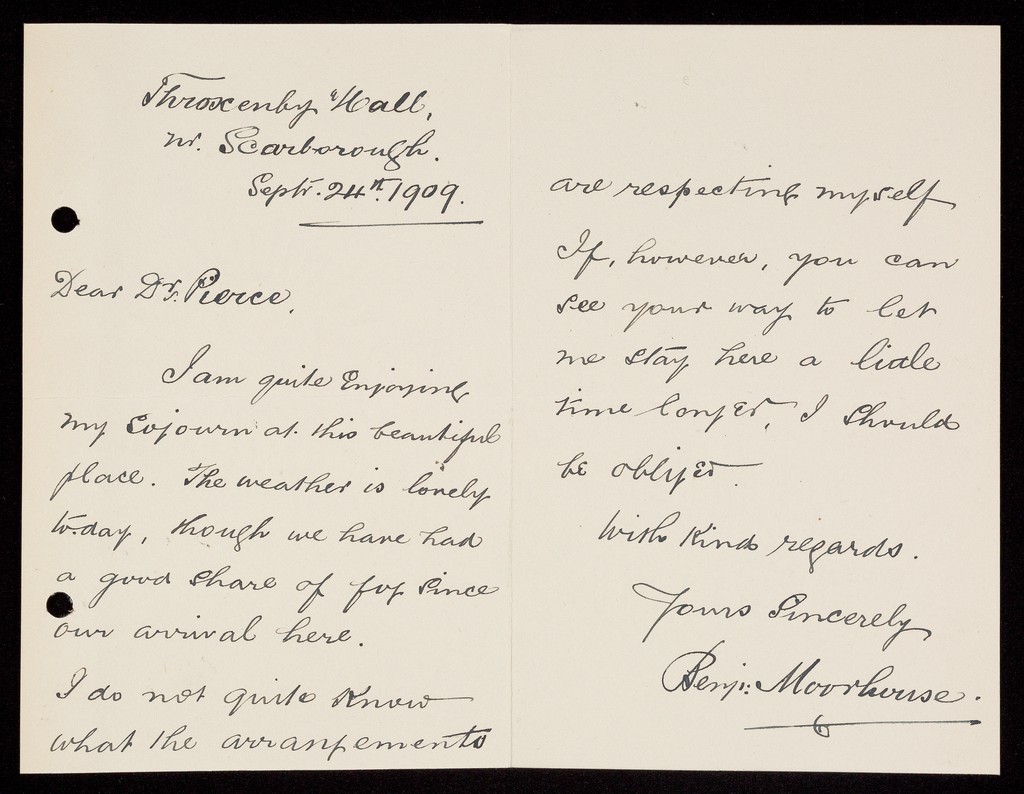 Throxenby Hall,
nr. Scarborough.
Septr. 24th. 1909.
Dear Dr. Pierce,
I am quite Enjoying
my Sojourn at this beautiful
place. The weather is lovely
to-day, though we have had
a good Share of fog Since
our arrival here.
I do not quite Know
what the arrangements
are respecting myself
If, however, you can
see your way to let
me stay here a little
time longer, I Should
be obliged.
With Kind regards.
Yours Sincerely
Benj: Moorhouse.